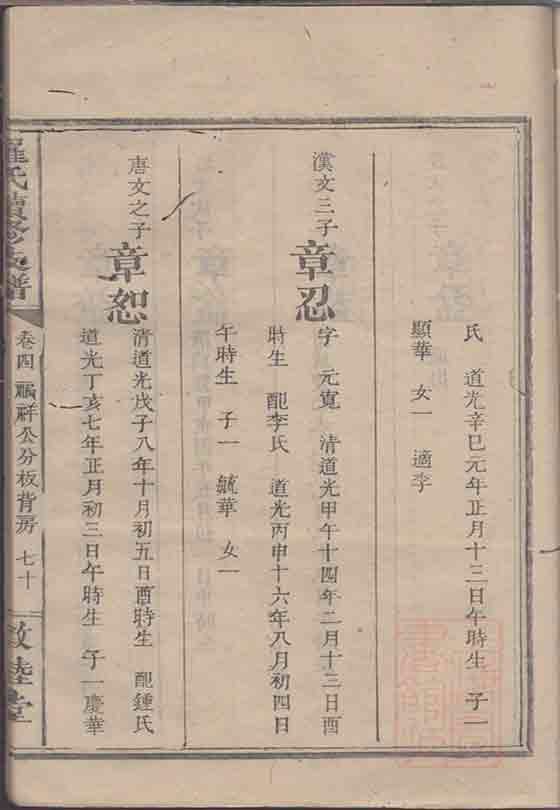 氏 道光辛巳元年正月十三日午時生 子一
顯華 女一 適李
漢文三子
章忍
字 元寬 清道光甲午十四年二月十三日酉
時生 配李氏 道光丙申十六年八月初四日
午時生 子一 毓華 女一
唐文之子
章恕
清道光戊子八年十月初五日酉時生 配鍾氏
道光丁亥七年正月初三日午時生 子一慶華
羅氏續修族譜
卷四 鵬祥公分板背房 七十
敦睦堂